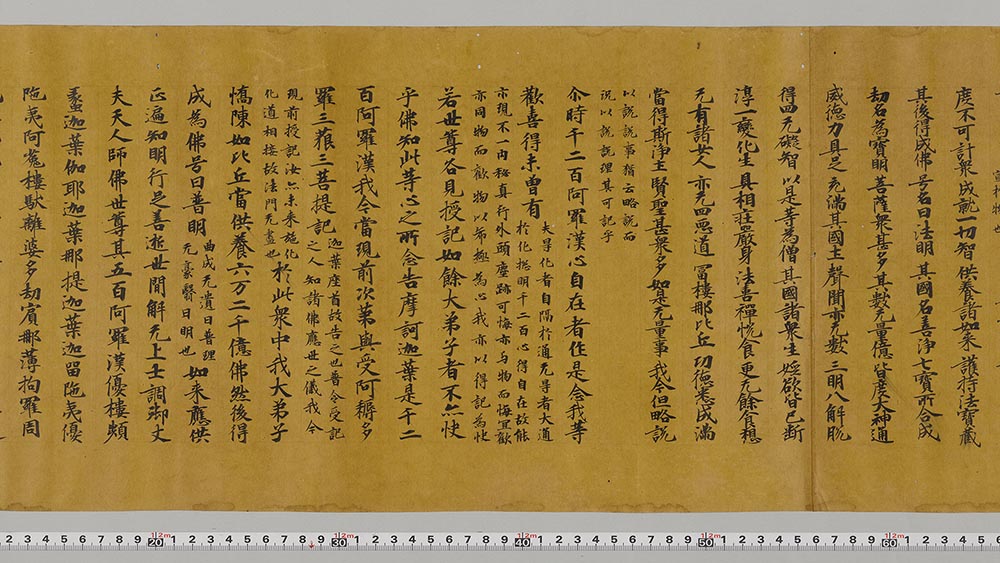 度不可計衆成就一切智供養諸如来護持法寶藏
其後得成佛号名曰法明其國名善浄七寶所合成
劫名為寶明菩薩衆甚多其數无量億皆度大神通
威德力具足充滿其國土聲聞亦无數三明八解脱
得四无礙智以是等為僧其國諸衆生婬欲皆已断
淳一變化生具相莊嚴身法喜禪悦食更无餘食想
无有諸女人亦无四悪道冨樓那比丘功德悉成滿
當得斯浄土賢聖衆甚多如是无量事我今但略説
以説説事猶云略説而
況以説説理其可記乎
尒時千二百阿羅漢心自在者作是念我等
歡喜得未曽有
夫學化者自隔於通无學者大通
於化揔明千二百心得自在故能
亦現不一内秘真行外頭塵跡可悔亦与物而悔冝歡
亦同物而歡物以茆極為心我亦以得記為快
若世尊各見授記如餘大弟子者不亦快
乎佛知此等心之所念告摩訶迦葉是千二
百阿羅漢我今當現前次第與受阿耨多
羅三藐三菩提記
迦葉座首故告之也普令受記
之人知諸佛應世之儀我今
現前授記汝亦未来施化
化道相接故法門无盡也
於此衆中我大弟子
憍陳如比丘當供養六万二千億佛然後得
成為佛号曰普明
曲成无遺曰普理
无豪翳曰明也
如来應供
正遍知明行足善逝世間解无上士調御丈
夫天人師佛世尊其五百阿羅漢優樓頻
䗍迦葉伽耶迦葉那提迦葉迦留陁夷優
陁夷阿㝹樓馱離婆多劫賓那薄拘羅周